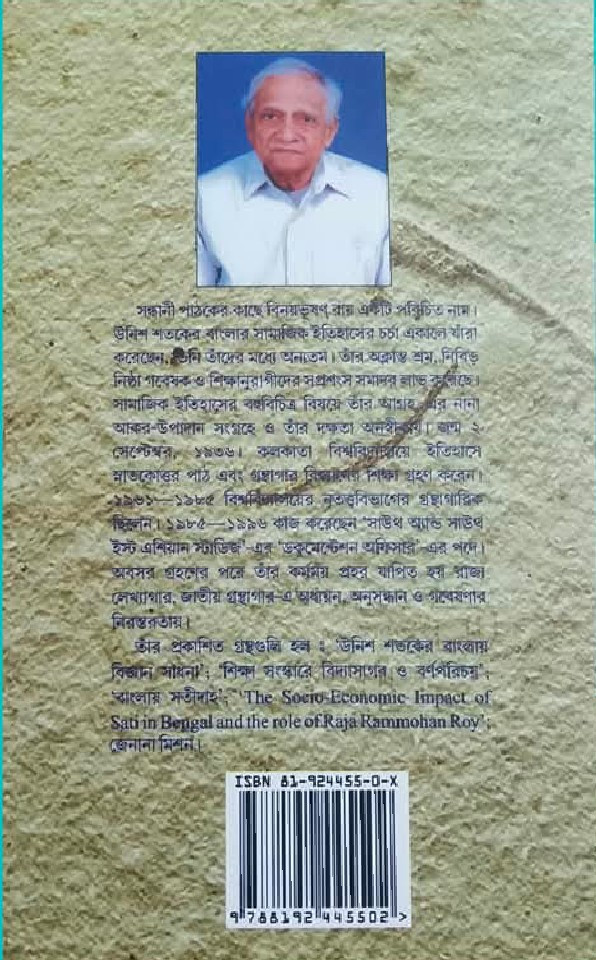 সন্ধানী পাঠকের কাছে বিনয়ভূষণ রায় একটি পরিচিত নাম।
উনিশ শতকের বাংলার সামাজিক ইতিহাসের চর্চা একালে যাঁরা
করেছেন, তিনি তাঁদের মধ্যে অন্যতম। তাঁর অক্লান্ত শ্রম, নিবিড়
নিষ্ঠা গবেষক ও শিক্ষানুরাগীদের সপ্রশংস সমাদর লাভ করেছে।
সামাজিক ইতিহাসের বহুবিচিত্র বিষয়ে তাঁর আগ্রহ, এর নানা
আকর-উপাদান সংগ্রহে ও তাঁর দক্ষতা অনস্বীকার্য। জন্ম ২
সেপ্টেম্বর, ১৯৩৬। কলকাতা বিশ্ববিদ্যালয়ে ইতিহাসে
স্নাতকোত্তর পাঠ এবং গ্রন্থাগার বিজ্ঞানের শিক্ষা গ্রহণ করেন।
১৯৬১—১৯৮৫ বিশ্ববিদ্যালয়ের নৃতত্ত্ববিভাগের গ্রন্থাগারিক
ছিলেন। ১৯৮৫—১৯৯৬ কাজ করেছেন ‘সাউথ অ্যান্ড সাউথ
ইস্ট এশিয়ান স্টাডিজ’-এর ‘ডকুমেন্টেশন অফিসার’-এর পদে।
অবসর গ্রহণের পরে তাঁর কর্মময় প্রহর যাপিত হয় রাজ্য
লেখ্যাগার, জাতীয় গ্রন্থাগার-এ অধ্যয়ন, অনুসন্ধান ও গবেষণার
নিরন্তরতায়।
তাঁর প্রকাশিত গ্রন্থগুলি হল : ‘উনিশ শতকের বাংলায়
বিজ্ঞান সাধনা’; ‘শিক্ষা সংস্কারে বিদ্যাসাগর ও বর্ণপরিচয়’;
‘বাংলায় সতীদাহ’; ‘The Socio-Economic Impact of
Sati in Bengal and the role of Raja Rammohan Roy’;
জেনানা মিশন।
ISBN 81-924455-0-X
9 788192 445502 >